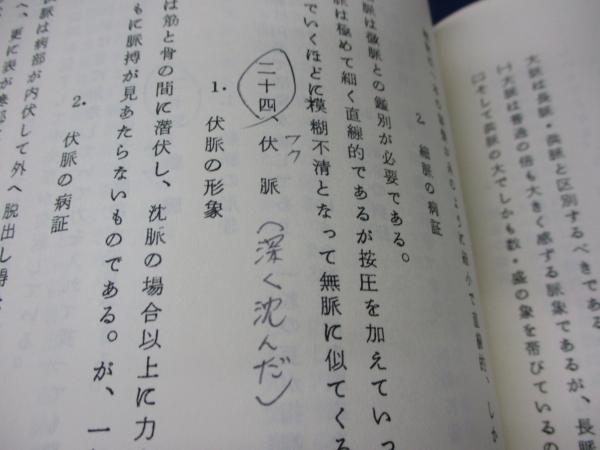 大脈は長脈・洪脈と区別するべきである
㈠大脈は普通の倍も大きく感ずる脈象であるが、長脈
㈡そして洪脈の大でしかも数・盛の象を帯びているの
2. 細脈の病証
小で直線的、しか
脈は微脈との鑑別が必要である。
脈は極めて細く直線的であるが按圧を加えていっ
でいくほどに模糊不清となって無脈に似てくる
二十四、伏脈 (深く沈んだ)
フク
1. 伏脈の形象
は筋と骨の間に潜伏し、沈脈の場合以上に力
もに脈搏が見あたらないものである。が、一
2. 伏脈の病証
脈は病部が内伏して外へ脱出し得
へ、更に表が